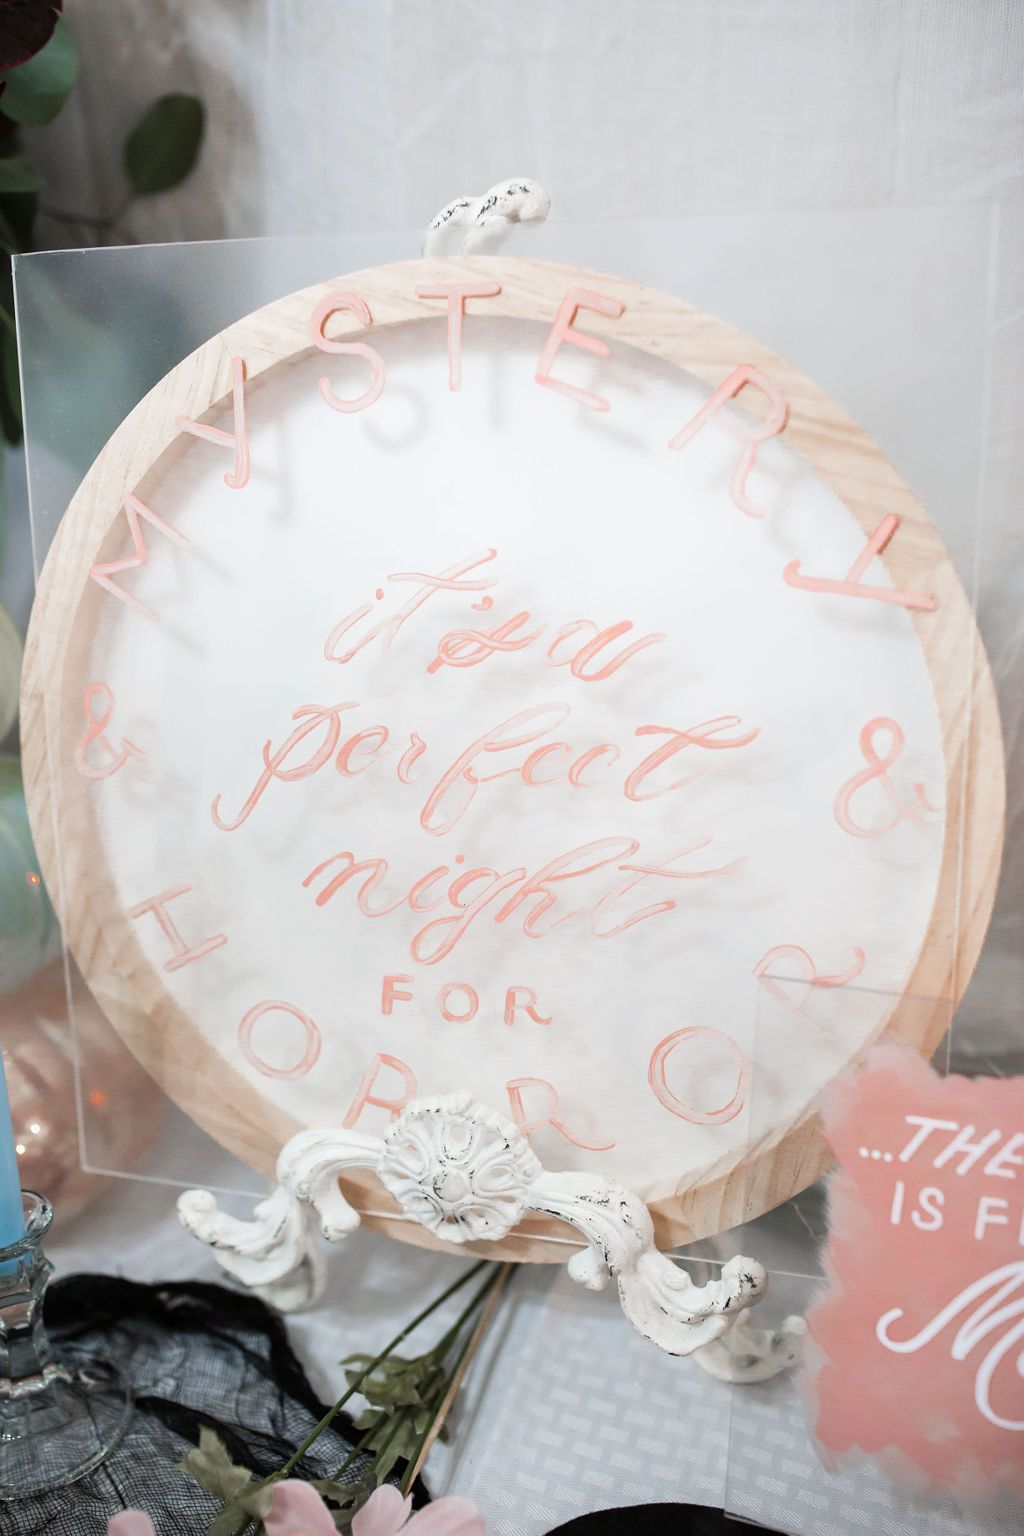 MYSTERY
it's a
perfect
night
FOR
& HORROR &
...THE
IS